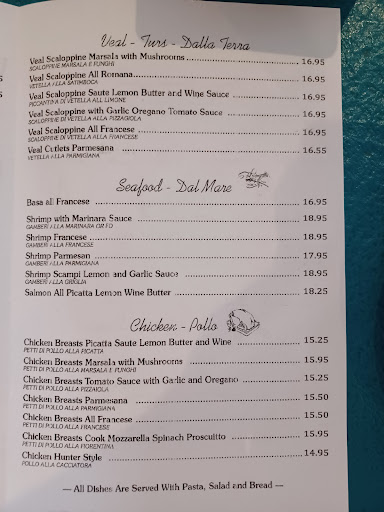 Veal - Turs - Dalla Terra
Veal Scaloppine Marsala with Mushrooms 16.95
SCALOPPINE MARSALA E FUNGHI
Veal Scaloppine All Romana 16.95
VETELLA ALLA SATIMBOCA
Veal Scaloppine Saute Lemon Butter and Wine Sauce 16.95
PICCANTINA DI VETELLA ALL LIMONE
Veal Scaloppine with Garlic Oregano Tomato Sauce 16.95
SCALOPPINE DI VETELLA ALLA PIZZAGIOLA
Veal Scaloppine All Francese 16.95
SCALOPPINE DI VETELLA ALLA FRANCESE
Veal Cutlets Parmesana 16.55
VETELLA ALLA PARMIGIANA
Seafood - Dal Mare
Basa all Francese 16.95
Shrimp with Marinara Sauce 18.95
GAMBERI ALLA MARINARA OR FD
Shrimp Francese 18.95
GAMBERI ALLA FRANCESE
Shrimp Parmesan 17.95
GAMBERI ALLA PARMIGIANA
Shrimp Scampi Lemon and Garlic Sauce 18.95
GAMBERI ALLA GRIGLIA
Salmon All Picatta Lemon Wine Butter 18.25
Chicken - Pollo
Chicken Breasts Picatta Saute Lemon Butter and Wine 15.25
PETTI DI POLLO ALLA PICATTA
Chicken Breasts Marsala with Mushrooms 15.95
PETTI DI POLLO ALLA MARSALA E FUNGHI
Chicken Breasts Tomato Sauce with Garlic and Oregano 15.25
PETTI DI POLLO ALLA PIZZAIOLA
Chicken Breasts Parmesana 15.50
PETTI DI POLLO ALLA PARMIGIANA
Chicken Breasts All Francese 15.50
PETTI DI POLLO ALLA FRANCESE
Chicken Breasts Cook Mozzarella Spinach Proscuitto 15.95
PETTI DI POLLO ALLA FIORENTINA
Chicken Hunter Style 14.95
POLLO ALLA CACCIATORA
— All Dishes Are Served With Pasta, Salad and Bread —